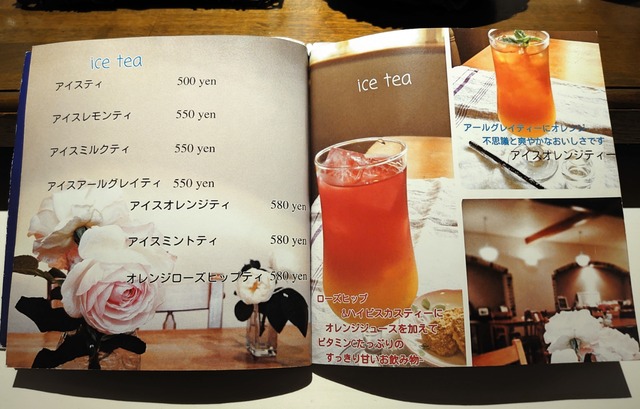 ice tea
アイスティ 500 yen
アイスレモンティ 550 yen
アイスミルクティ 550 yen
アイスアールグレイティ 550 yen
アイスオレンジティ 580 yen
アイスミントティ 580 yen
オレンジローズヒップティ 580 yen
ice tea
ローズヒップ
&ハイビスカスティーに
オレンジジュースを加えて
ビタミンCたっぷりの
すっきり甘いお飲み物-
アールグレイティーにオレンジ
不思議と爽やかなおいしさです
アイスオレンジティー